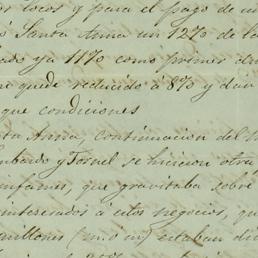 os locos y para el pago de un
ó Santa Anna un 12% de la
ado ya 11% como primer
quede reducido á 8% y
que condiciones
ta Anna continuacion del
Lombardo y Tornel se hicieron otra
infames, que gravitaba sobre
interesados á estos negocios, qu
millones (m. ó m) estaban